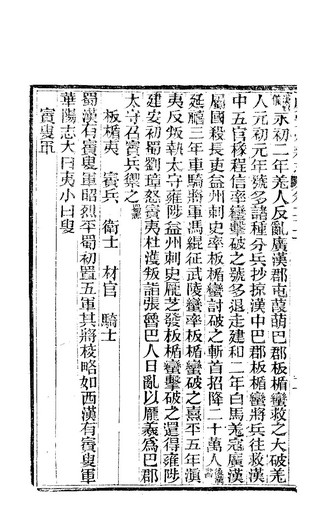 永初二年羌人反亂廣漢郡屯葭萌巴郡板楯蠻救之大破羌
人元初元年號多諸種分兵抄掠漢中巴郡板楯蠻將兵往救漢
中五官椽程信率蠻擊破之號多退走建和二年白馬羌寇廣漢
屬國殺長吏益州刺史率板楯蠻討破之斬首招降二十萬人後漢書
延熹三年車騎將軍馮緄征武陵蠻率板楯蠻破之熹平五年滇
夷反叛執太守雍陟益州刺史龐芝發板楯蠻擊破之還得雍陟
建安初蜀劉璋怒賨夷杜濩叛詣張魯巴人日亂以龐羲為巴郡
太守召賨兵禦之
板楯夷　賨兵　衛士　材官　騎士
蜀漢有賨叟軍昭烈平蜀初置五軍其將校略如西漢有賨叟軍
華陽志大曰夷小曰叟
賨叟軍